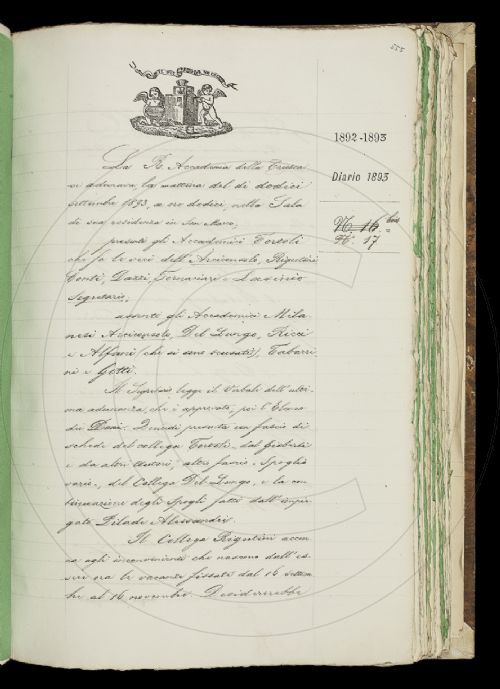 555
1892-1893
Diario 1893
N. 16 bis
N. 17
La R. Accademia della Crusca
si adunava la mattina del dì dodici
settembre 1893, a ore dodici nella Sala
di sua residenza in San Marco;
presenti gli Accademici Tortoli
che fa le veci dell'Arciconsolo, Rigutini
Conti, Dazzi, Fornaciari e
Segretario;
assenti gli Accademici Mila-
nesi Arciconsolo, Del Lungo, Ricci
e Alfani (che si sono scusati), Tabarri-
ni e Gotti.
Il Segretario legge il Verbale dell'ulti-
ma adunanza, che è approvato, poi l'Elenco
dei Doni. Quindi presenta un fascio di
schede del collega Tortoli dal Giuberti
e da altri autori, altro fascio di Spoglio
vario, del Collega Del Lungo, e la con
tinuazione degli Spogli fatti dall'impie-
gato Pilade Alessandri.
Il Collega Rigutini accen-
na agli inconvenienti che nascono dall'es-
sere ora le vacanze fissate dal 16 settem-
bre al 16 novembre. Desidererebbe